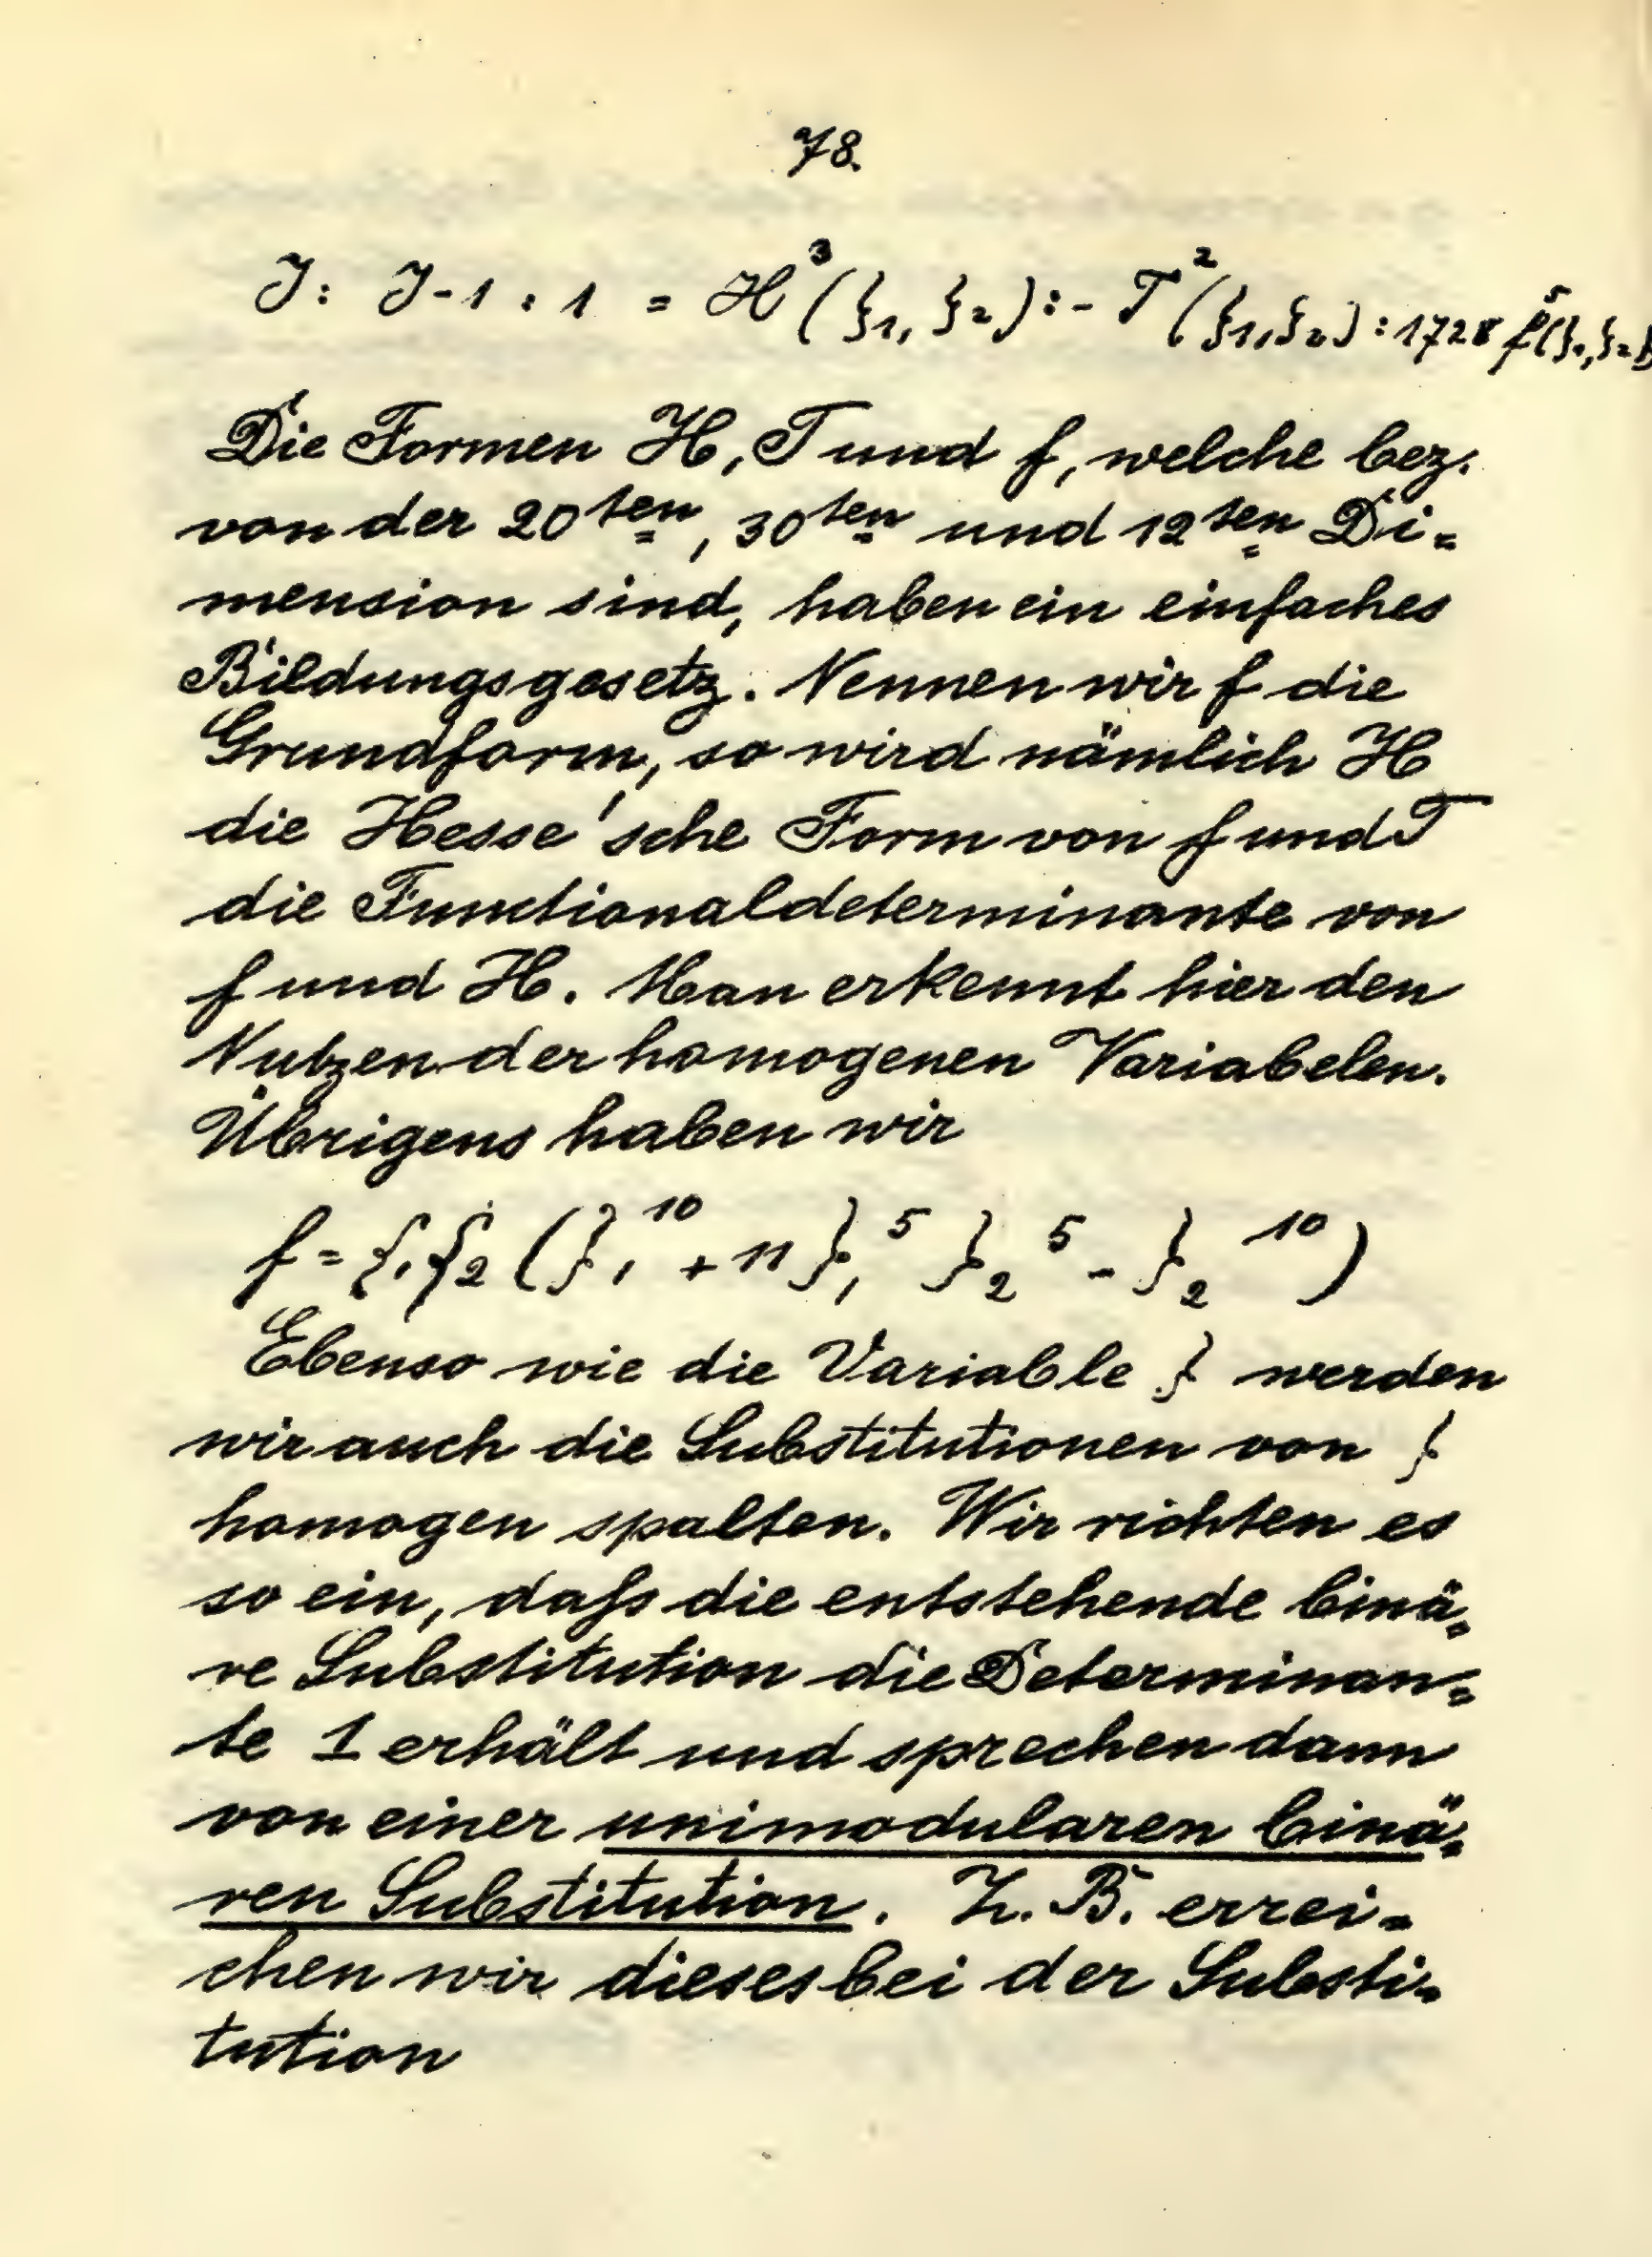 78.
J : J-1 : 1 = H³(ξ₁, ξ₂) : - T²(ξ₁, ξ₂) : 1728 f⁵(ξ₁, ξ₂)
Die Formen H, T und f, welche bez.
von der 20ten, 30ten und 12ten Di=
mension sind, haben ein einfaches
Bildungsgesetz. Nennen wir f die
Grundform, so wird nämlich H
die Hesse'sche Form von f und T
die Functionaldeterminante von
f und H. Man erkennt hier den
Nutzen der homogenen Variabelen.
Übrigens haben wir
f = ξ₁ξ₂ (ξ₁¹⁰ + 11 ξ₁⁵ ξ₂⁵ - ξ₂¹⁰)
Ebenso wie die Variable ξ werden
wir auch die Substitutionen von ξ
homogen spalten. Wir richten es
so ein, daſs die entstehende binä=
re Substitution die Determinan=
te 1 erhält und sprechen dann
von einer unimodularen binä=
ren Substitution. Z. B. errei=
chen wir dieses bei der Substi=
tution